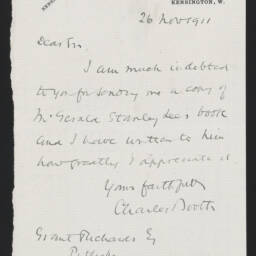 KENSINGTON, W.
26 Nov 1911
Dear Sir
I am much indebted
to you for sending me a copy of
Mr Gerald Stanley Lees book
and I have written to him
how greatly I appreciate it
Yours faithfully
Charles Booth
Grant Richards Esq
Publisher